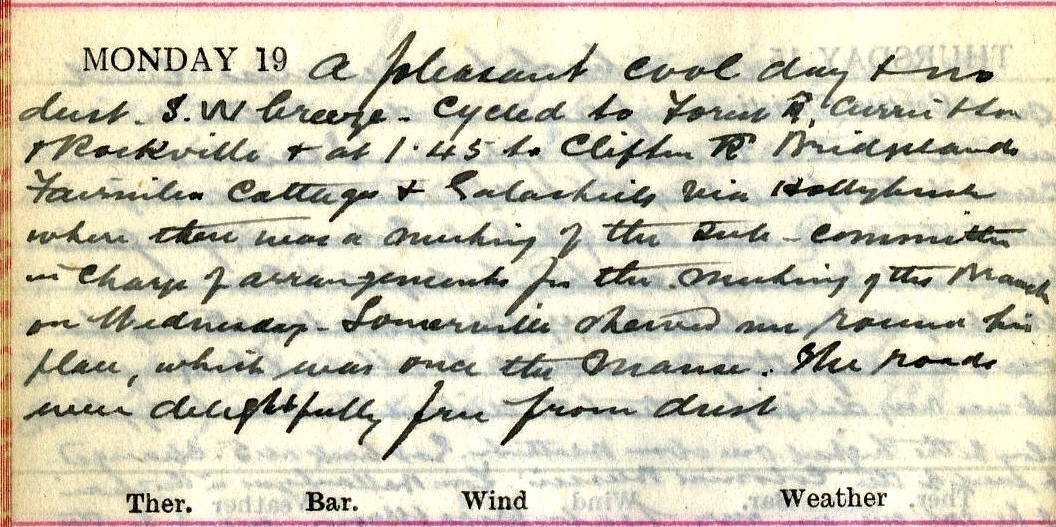 MONDAY 19 A pleasant cool day & no
dust. S.W breeze. Cycled to Forest R,
& Rockville & at 1.45 to Clifton Rd Bridgelands
Fairnilee Cottage & Galashiels via Hollybush
where there was a meeting of the sub-committee
in charge of arrangements for the meeting of the Branch
on Wednesday. Somerville shewed me round his
place, which was once the Manse. The roads
were delightfully free from dust
Ther. Bar. Wind Weather